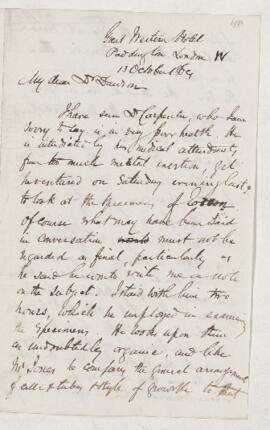 Great Western Hotel
Paddington London W
13 October 1864
My dear Dr Dawson
I have seen Dr Carpenter, who I am
sorry to say is in very poor health. He
is interdicted by his medical attendants,
from too much mental exertion, yet
he ventured on Saturday evening last,
to look at the specimens,
of course what may have been said
in conversation must not be
regarded as final, particularly as
he said he would write me a note
on the subject. I staid with him two
hours, which he employed in examining
the specimens. He looks upon them
as undoubtedly organic, and like
Mr Jones he compares the general arrangement
of cells & tubes & style of growth to that